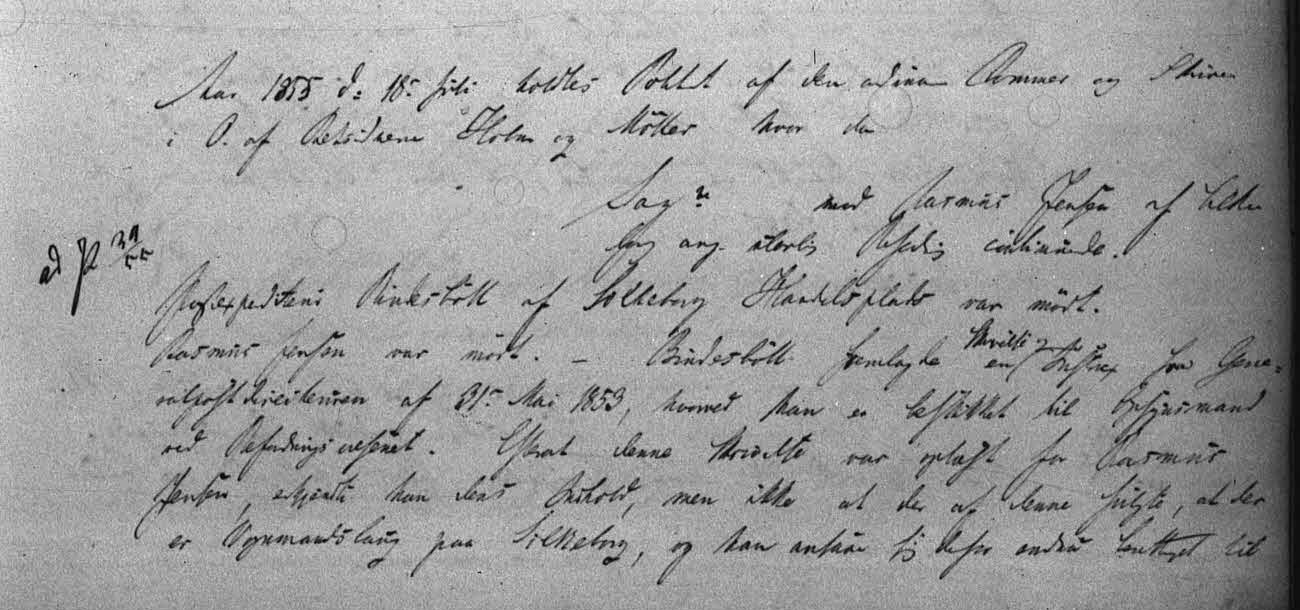 Aar 1855 d: 18de Juli holdtes Politiret af den ordinære Dommer og Skriver
i O. af Retsvidnerne Holm og Møller hvor da
Sag med Rasmus Jensen af Silke
borg ang. ulovlig Befordring continuerede.
ad P 39/55
Postexpediteur Bindesbøll af Silkeborg Handelsplads var mødt.
Rasmus Jensen var mødt. – Bindesbøll fremlagde en Skrivelse fra Gene-
ralpostdirecteuren af 31te Mai 1853, hvorved han er beskikket til Opsynsmand
ved Befordringsvæsenet. Efterat denne Skrivelse var oplæst for Rasmus
Jensen, erkjendte han dens Indhold, men ikke at der af denne fulgte, at der
er Vognmandslaug paa Silkeborg, og han ansaae sig derfor endnu berettiget til